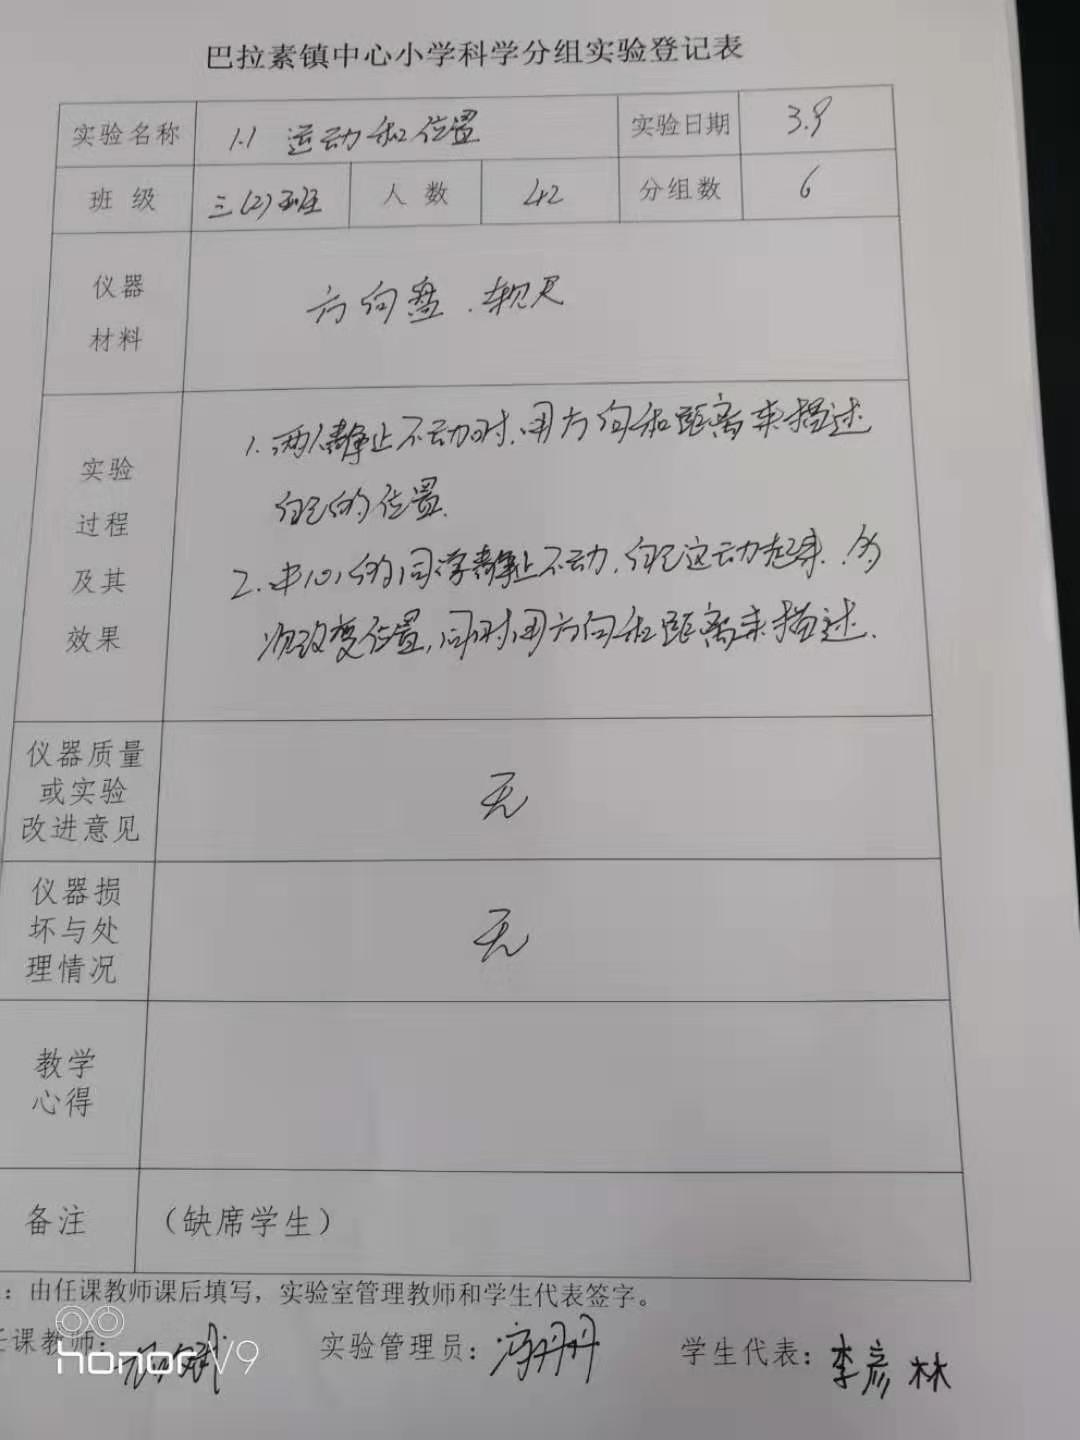 巴拉素镇中心小学科学分组实验登记表
实验名称 1.1 运动和位置 实验日期 3.9
班级 三(2)班 人数 42 分组数 6
仪器
材料
方向盘、软尺
实验
过程
及其
效果
1. 两人静止不动时,用方向和距离来描述
自己的位置.
2. 中心的同学静止不动,自己运动起来,
次改变位置,同时用方向和距离来描述.
仪器质量
或实验
改进意见
无
仪器损
坏与处
理情况
无
教学
心得
备注 (缺席学生)
:由任课教师课后填写,实验室管理教师和学生代表签字。
任课教师: 斌 实验管理员: 丹丹 学生代表:李彦林
honor V9